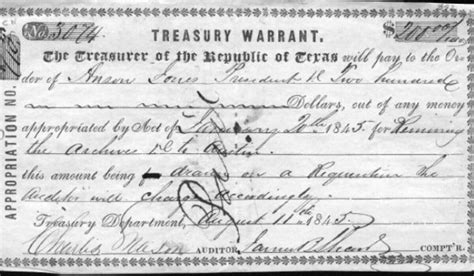 TREASURY WARRANT.
No. 3074. $200
The Treasurer of the Republic of Texas will pay to the Or-
der of Anson Jones President &c Two hundred
Dollars, out of any money
appropriated by Act of January 20th 1845 for
the Archives &c to Austin
this amount being drawn on a Requisition the
Auditor will charge accordingly.
Treasury Department, August 11th 1845.
Charles Mason AUDITOR COMPT'R.
APPROPRIATION NO.